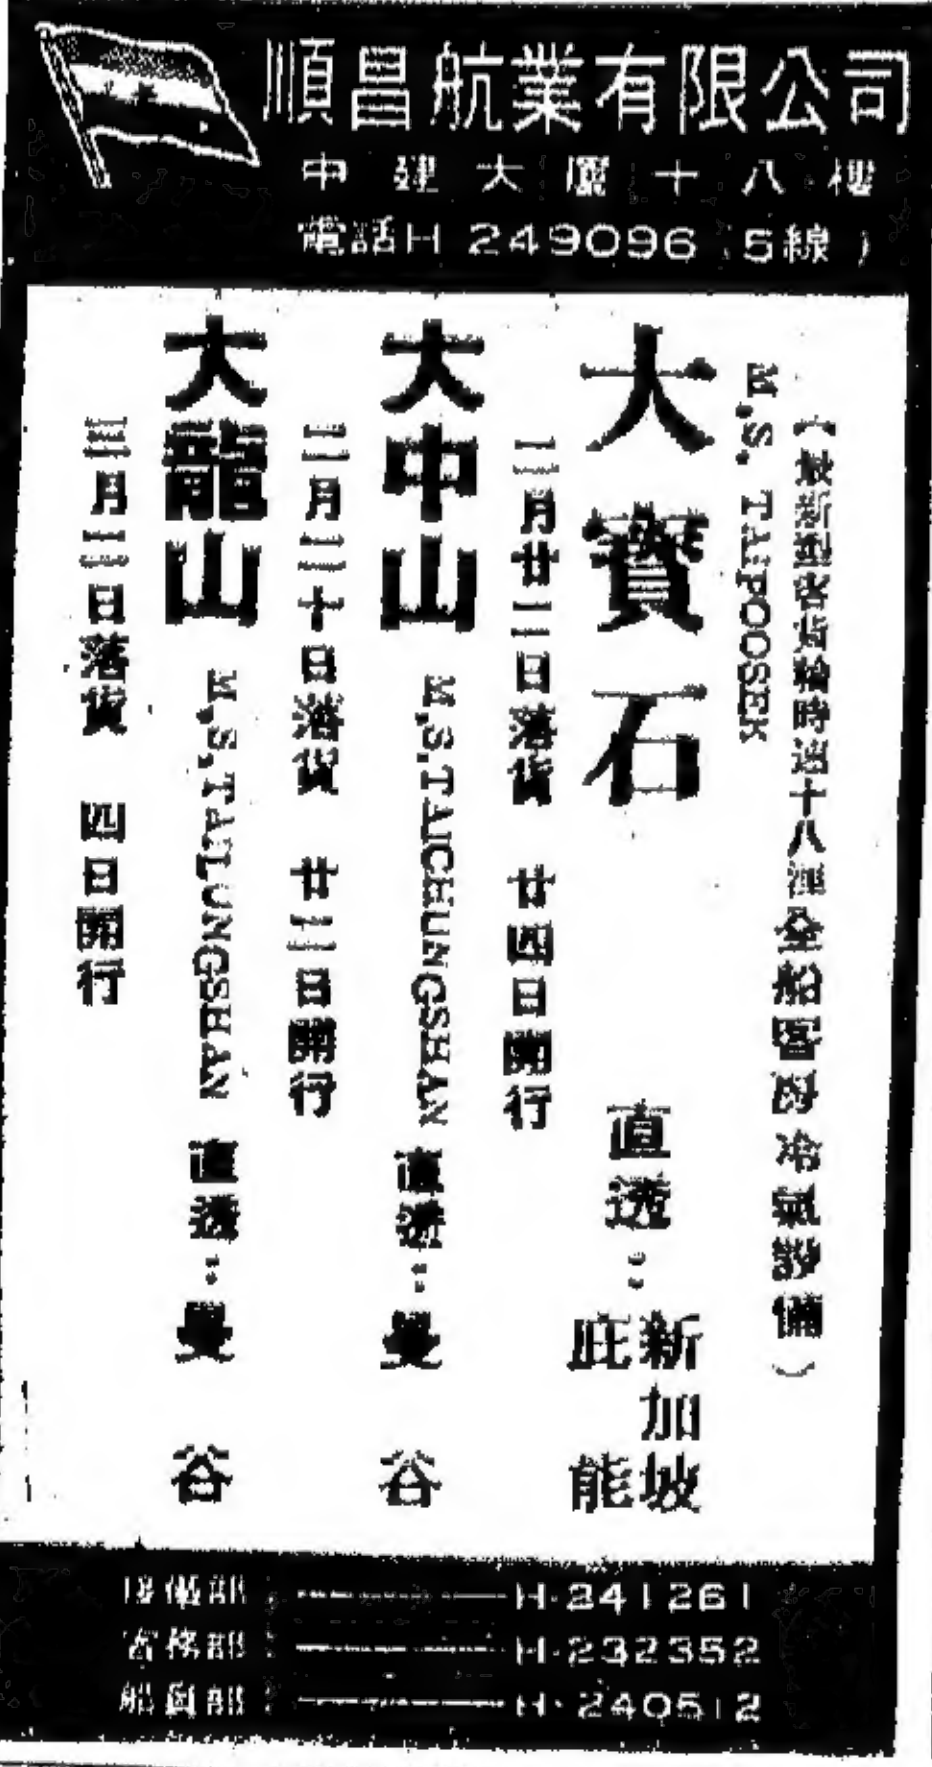 順昌航業有限公司
中建大厦十八樓
電話H 249096（5線）
（最新型客貨輪時速十八浬全船客房冷氣設備）
M.S. TAIPOOSEK
大寶石 直透：新加坡 庇能
二月廿二日落貨 廿四日開行
M.S.TAICHUNGSHAN
大中山 直透：曼谷
二月二十日落貨 廿二日開行
M.S.TAILUNGSHAN
大龍山 直透：曼谷
三月三日落貨 四日開行
H·241261
客務部：H·232352
船員部：H·240512